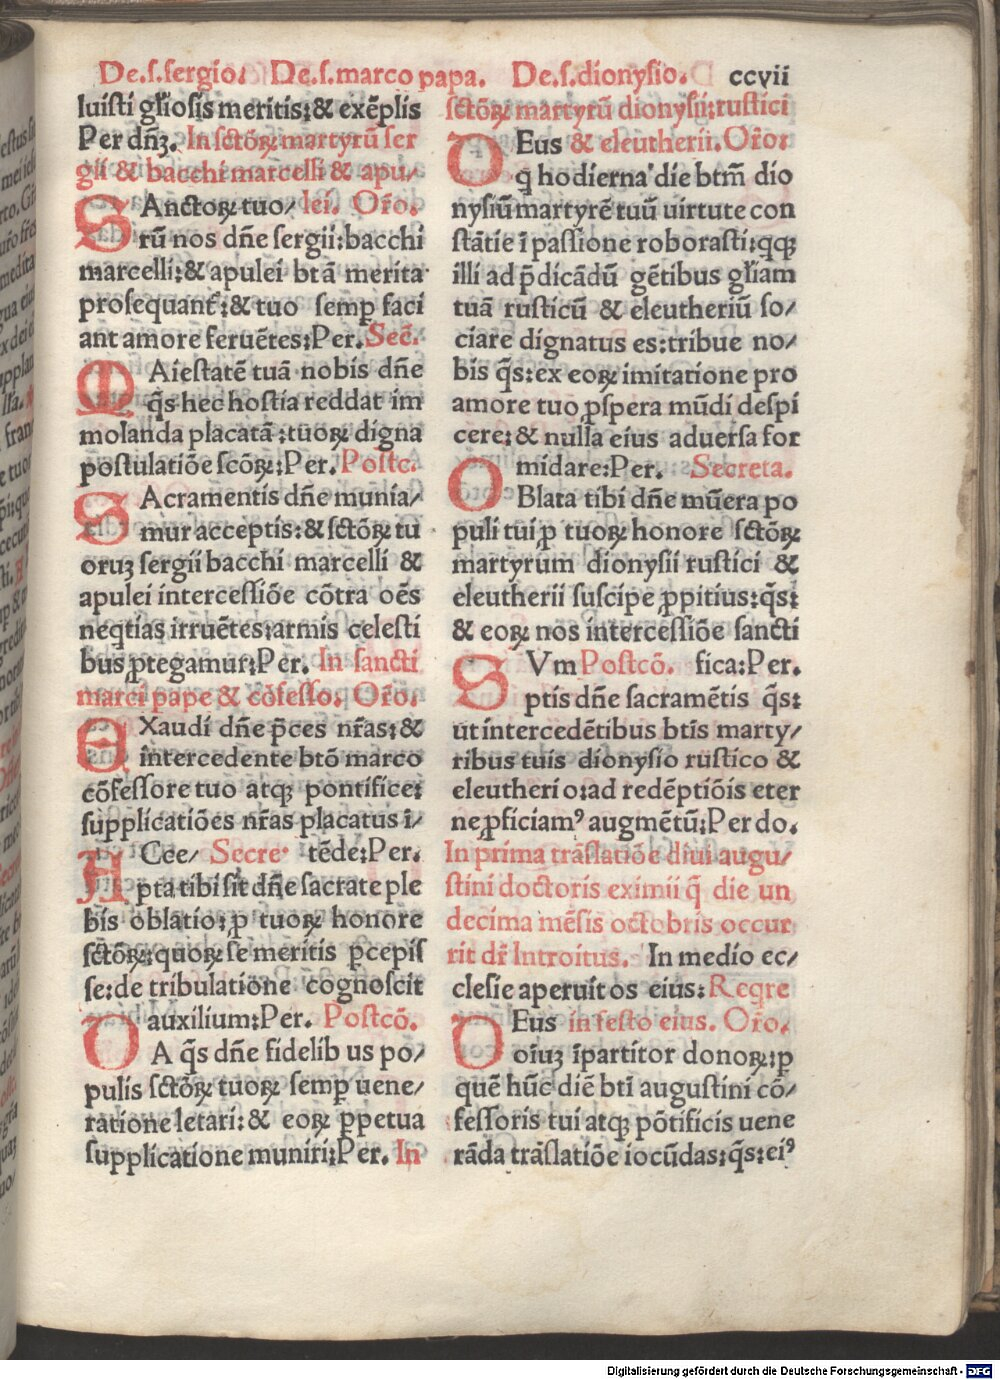 De.ſ.ſergio. De.ſ.marco papa. De.ſ.dionyſio. ccvii
luiſti gl̃ioſis meritis:& exẽplis
Per dñꝫ. In ſctõꝝ martyrũ ſer
gii & bacchi marcelli & apu/
SAnctoꝝ tuo/ lei. Or̃o.
rũ nos dñe ſergii:bacchi
marcelli:& apulei btã merita
proſequant̃:& tuo ſemꝑ faci
ant amore feruẽtes:Per. Sec̃.
MAieſtatẽ tuã nobis dñe
q̃s hec hoſtia reddat im
molanda placatã:tuoꝝ digna
poſtulatiõe ſcõꝝ:Per. Poſtc.
SAcramentis dñe munia/
mur acceptis:& ſctõꝝ tu
oruꝫ ſergii bacchi marcelli &
apulei interceſſiõe cõtra oẽs
neqtias irruẽtes:armis celeſti
bus ꝓtegamur:Per. In ſancti
marci pape & cõfeſſo. Or̃o.
EXaudi dñe p̃ces nr̃as:&
intercedente btõ marco
cõfeſſore tuo atqꝫ pontifice:
ſupplicatiões nr̃as placatus i/
ACce/ Secre tẽde:Per.
pta tibi ſit dñe ſacrate ple
bis oblatio:ꝓ tuoꝝ honore
ſctõꝝ:quoꝝ ſe meritis ꝑcepiſ
ſe:de tribulatiõne cognoſcit
auxilium:Per. Poſtcõ.
DA q̃s dñe fidelib us po/
pulis ſctõꝝ tuoꝝ ſemꝑ uene/
ratione letari:& eoꝝ ꝑpetua
ſupplicatione muniri:Per. In
ſctõꝝ martyrũ dionyſii:ruſtici
DEus & eleutherii. Or̃o:
q̇ hodierna die btm̃ dio
nyſiũ martyrẽ tuũ uirtute con
ſtãtie ĩ paſſione roboraſti:qqꝫ
illi ad p̃dicãdũ gẽtibus gl̃iam
tuã ruſticũ & eleutheriũ ſo/
ciare dignatus es:tribue no/
bis q̃s:ex eoꝝ imitatione pro
amore tuo ꝓſpera mũdi deſpi
cere:& nulla eius aduerſa for
midare:Per. Secreta.
OBlata tibi dñe mũera po
puli tui ꝓ tuoꝝ honore ſctõꝝ
martyrum dionyſii ruſtici &
eleutherii ſuſcipe ꝓpitius:q̃s:
& eoꝝ nos interceſſiõe ſancti
SVm Poſtcõ. fica:Per.
ptis dñe ſacramẽtis q̃s:
ut intercedẽtibus btis marty/
ribus tuis dionyſio ruſtico &
eleutheri o:ad redẽptiõis eter
ne ꝓficiamꝰ augmẽtũ:Per do.
In prima trãſlatiõe diui augu/
ſtini doctoris eximii q̃ die un
decima mẽſis octobris occur
rit dr̃ Introitus. In medio ec/
cleſie aperuit os eius: Reqre
DEus in feſto eius. Or̃o.
oiuꝫ ĩpartitor donoꝝ:ꝑ
quẽ hũc diẽ bti auguſtini cõ/
feſſoris tui atqꝫ põtificis uene
rãda trãſlatiõe iocũdas:q̃s:eiꝰ
Digitalisierung gefördert durch die Deutsche Forschungsgemeinschaft - DFG